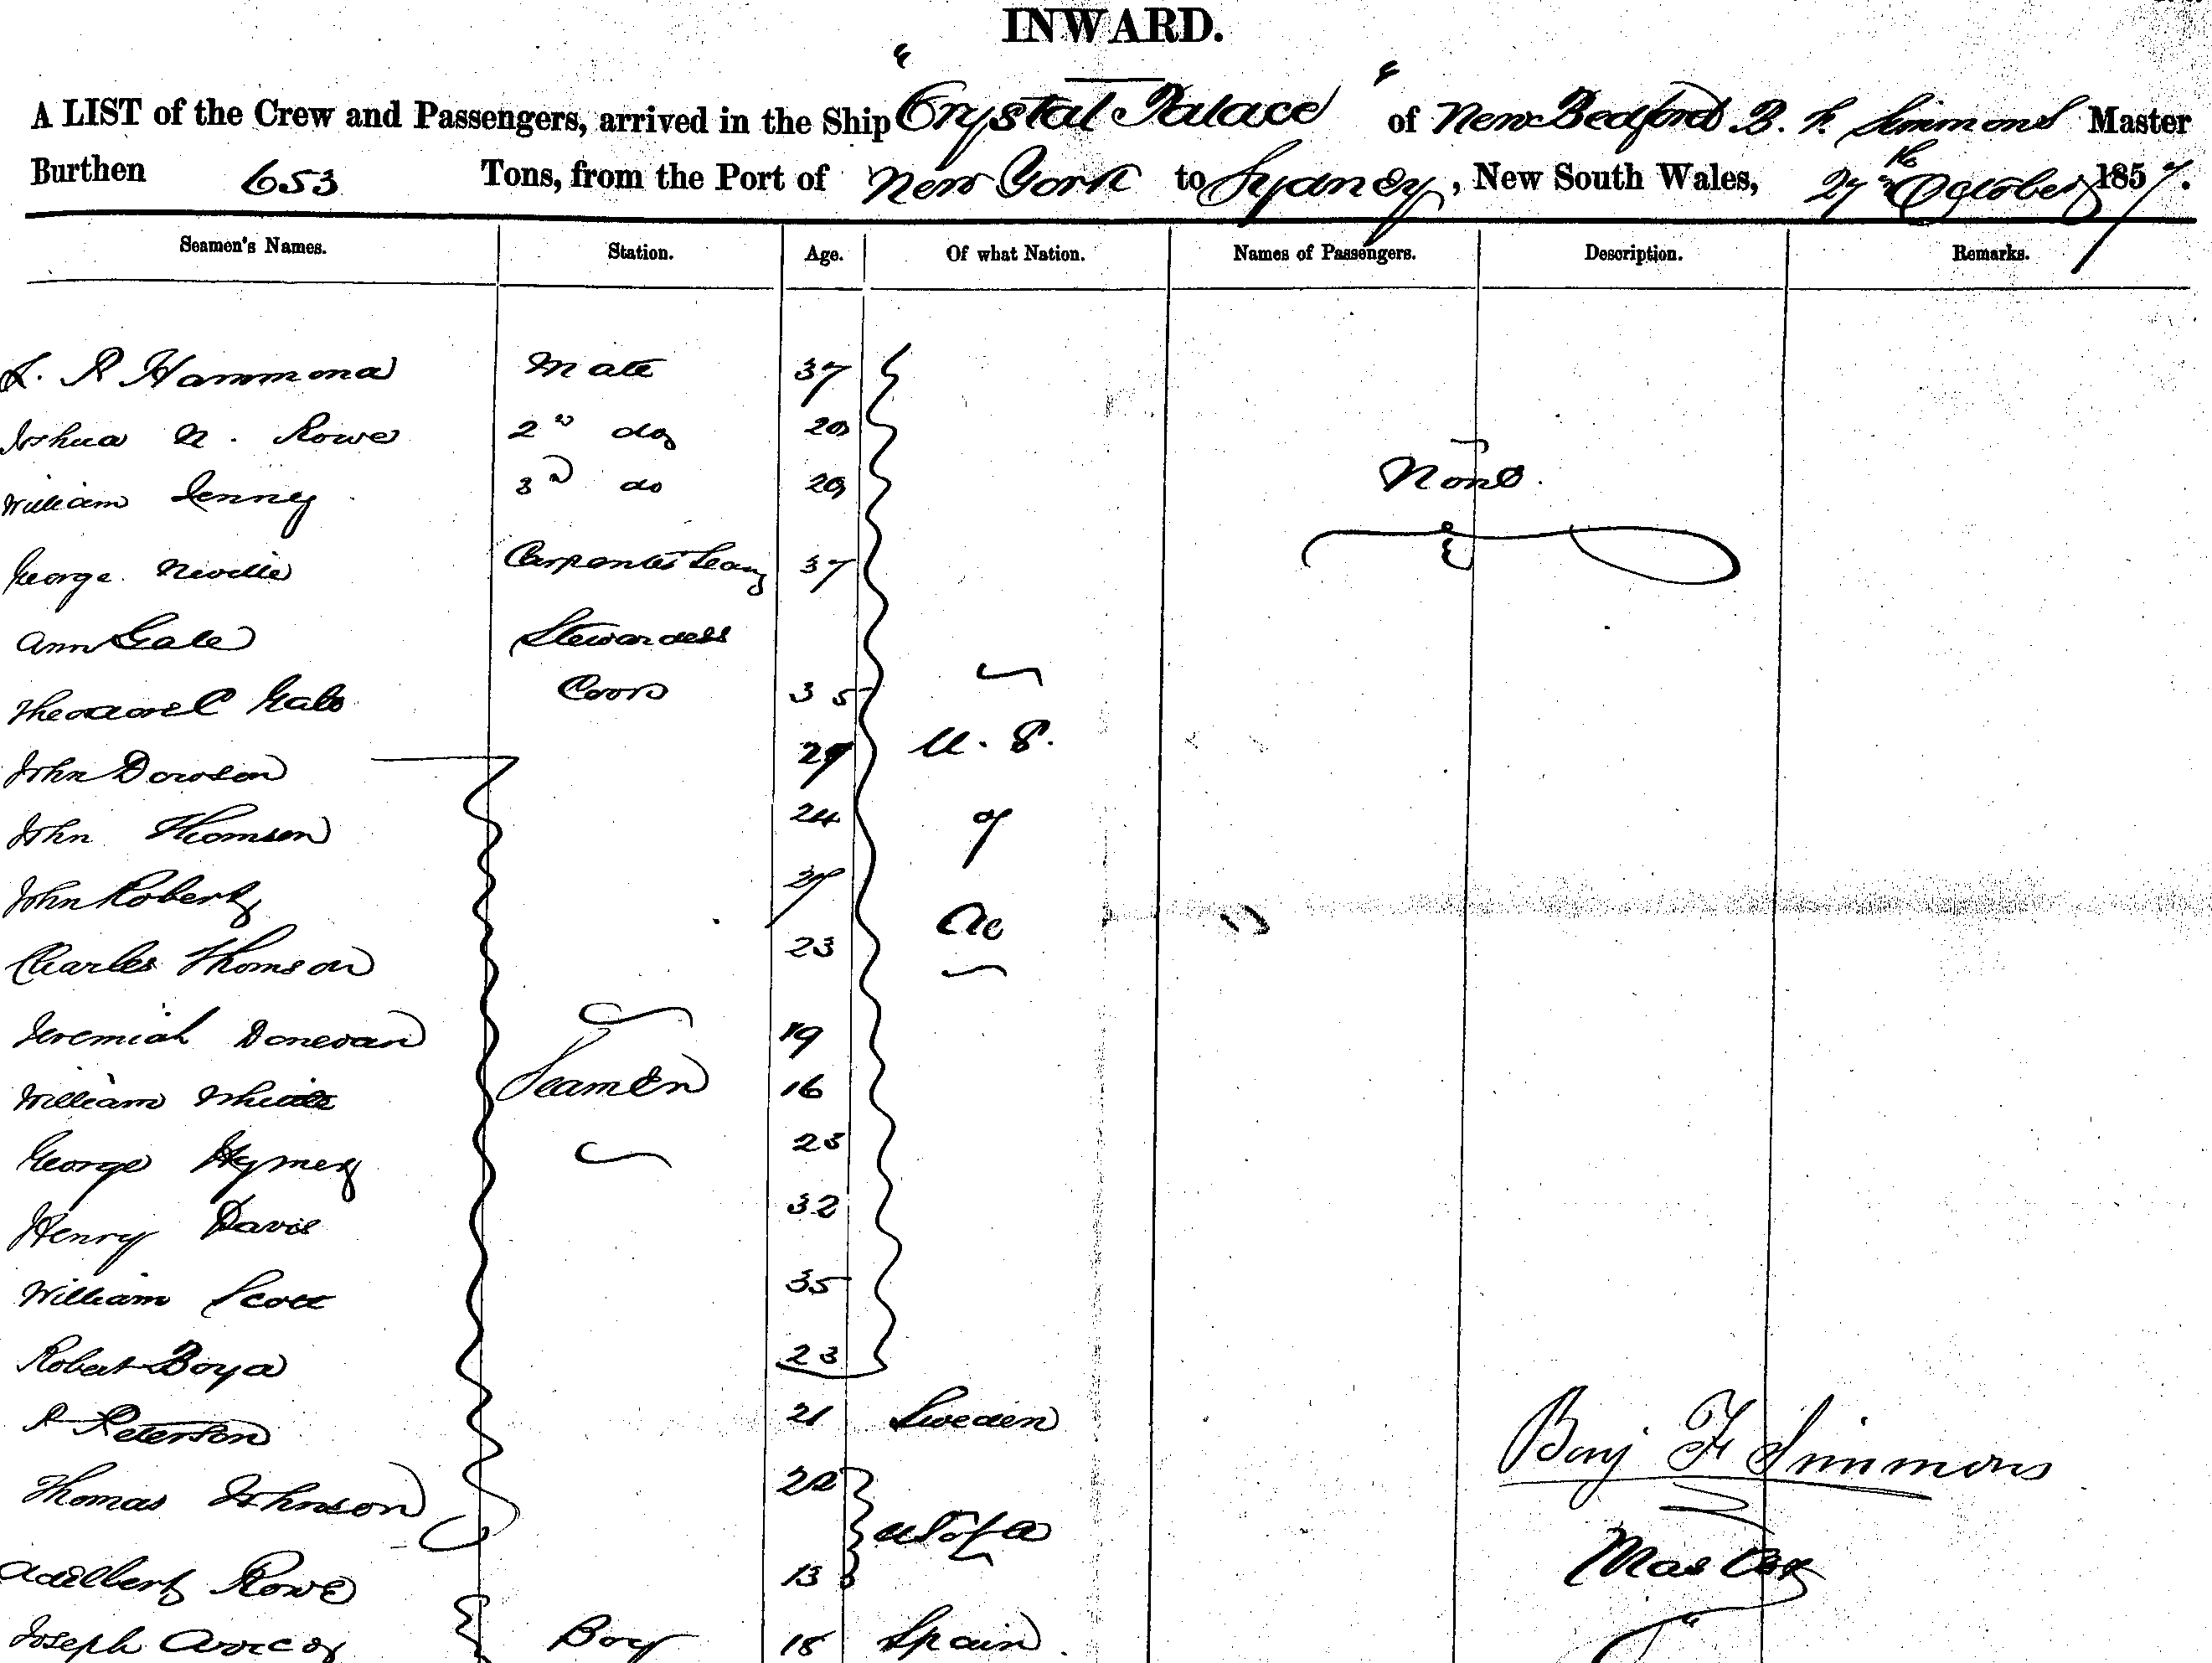 INWARD.
A LIST of the Crew and Passengers, arrived in the Ship "Crystal Palace" of New Bedford B. F. Simmons Master
Burthen 653 Tons, from the Port of New York to Sydney, New South Wales, 27th October 1857.
Seamen's Names. Station. Age. Of what Nation. Names of Passengers. Description. Remarks.
R Hammond Mate 37
Joshua N. Rowe 2d do 20
William Jenney 3d do None.
George Neville Carpenter 37
Ann Gale Stewardess
Theodore C Gale Cook 35
John Dowson 29 U. S.
John Thomson 24 of
John Roberts
Charles Thomson 23
Jeremiah Donevan 19
William White Seamen 16
George Hymers 23
Henry Davis 32
William Scott 35
Robert Boyd 23
Peterson 21 Sweden
Thomas Johnson 22
U S of A
Adelbert Rowe 13
Joseph Boy 18 Spain
Benj F Simmons
Master